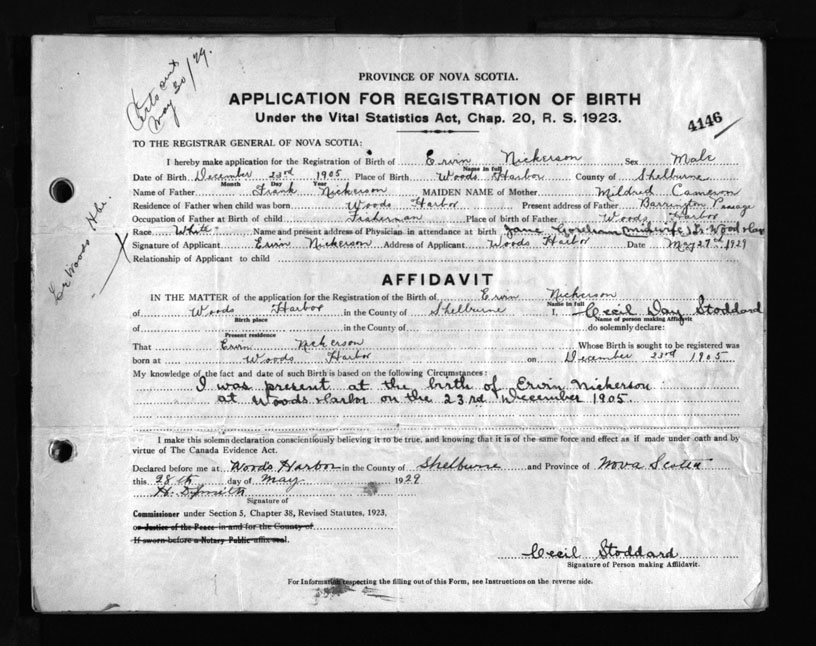 Certs sent
May 30/29.
PROVINCE OF NOVA SCOTIA.
APPLICATION FOR REGISTRATION OF BIRTH
4146
Under the Vital Statistics Act, Chap. 20, R. S. 1923.
TO THE REGISTRAR GENERAL OF NOVA SCOTIA:
I hereby make application for the Registration of Birth of Ervin Nickerson Sex Male
Name in full
Date of Birth December 23rd 1905 Place of Birth Woods Harbor County of Shelburne
Month Day Year
Name of Father Frank Nickerson MAIDEN NAME of Mother Mildred Cameron
Residence of Father when child was born Woods Harbor Present address of Father Barrington Passage
Occupation of Father at Birth of child Fisherman Place of birth of Father Woods Harbor
Race White Name and present address of Physician in attendance at birth Jane (midwife)
Signature of Applicant Ervin Nickerson Address of Applicant Woods Harbor Date May 27th 1929
Relationship of Applicant to child
Woods Hbr.
AFFIDAVIT
IN THE MATTER of the application for the Registration of the Birth of Ervin Nickerson
Name in full
of Woods Harbor in the County of Shelburne I, Cecil Day Stoddard
Birth place Name of person making Affidavit
of in the County of do solemnly declare:
Present residence
That Ervin Nickerson Whose Birth is sought to be registered was
born at Woods Harbor on December 23rd 1905
My knowledge of the fact and date of such Birth is based on the following Circumstances:
I was present at the birth of Ervin Nickerson
at Woods Harbor on the 23rd December 1905.
I make this solemn declaration conscientiously believing it to be true, and knowing that it is of the same force and effect as if made under oath and by
virtue of The Canada Evidence Act.
Declared before me at Woods Harbor in the County of Shelburne and Province of Nova Scotia
this 28th day of May 1929
H. D. Smith
Signature of
Commissioner under Section 5, Chapter 38, Revised Statutes, 1923,
or Justice of the Peace in and for the County of
If sworn before a Notary Public affix seal.
Cecil Stoddard
Signature of Person making Affidavit.
For Information respecting the filling out of this Form, see Instructions on the reverse side.